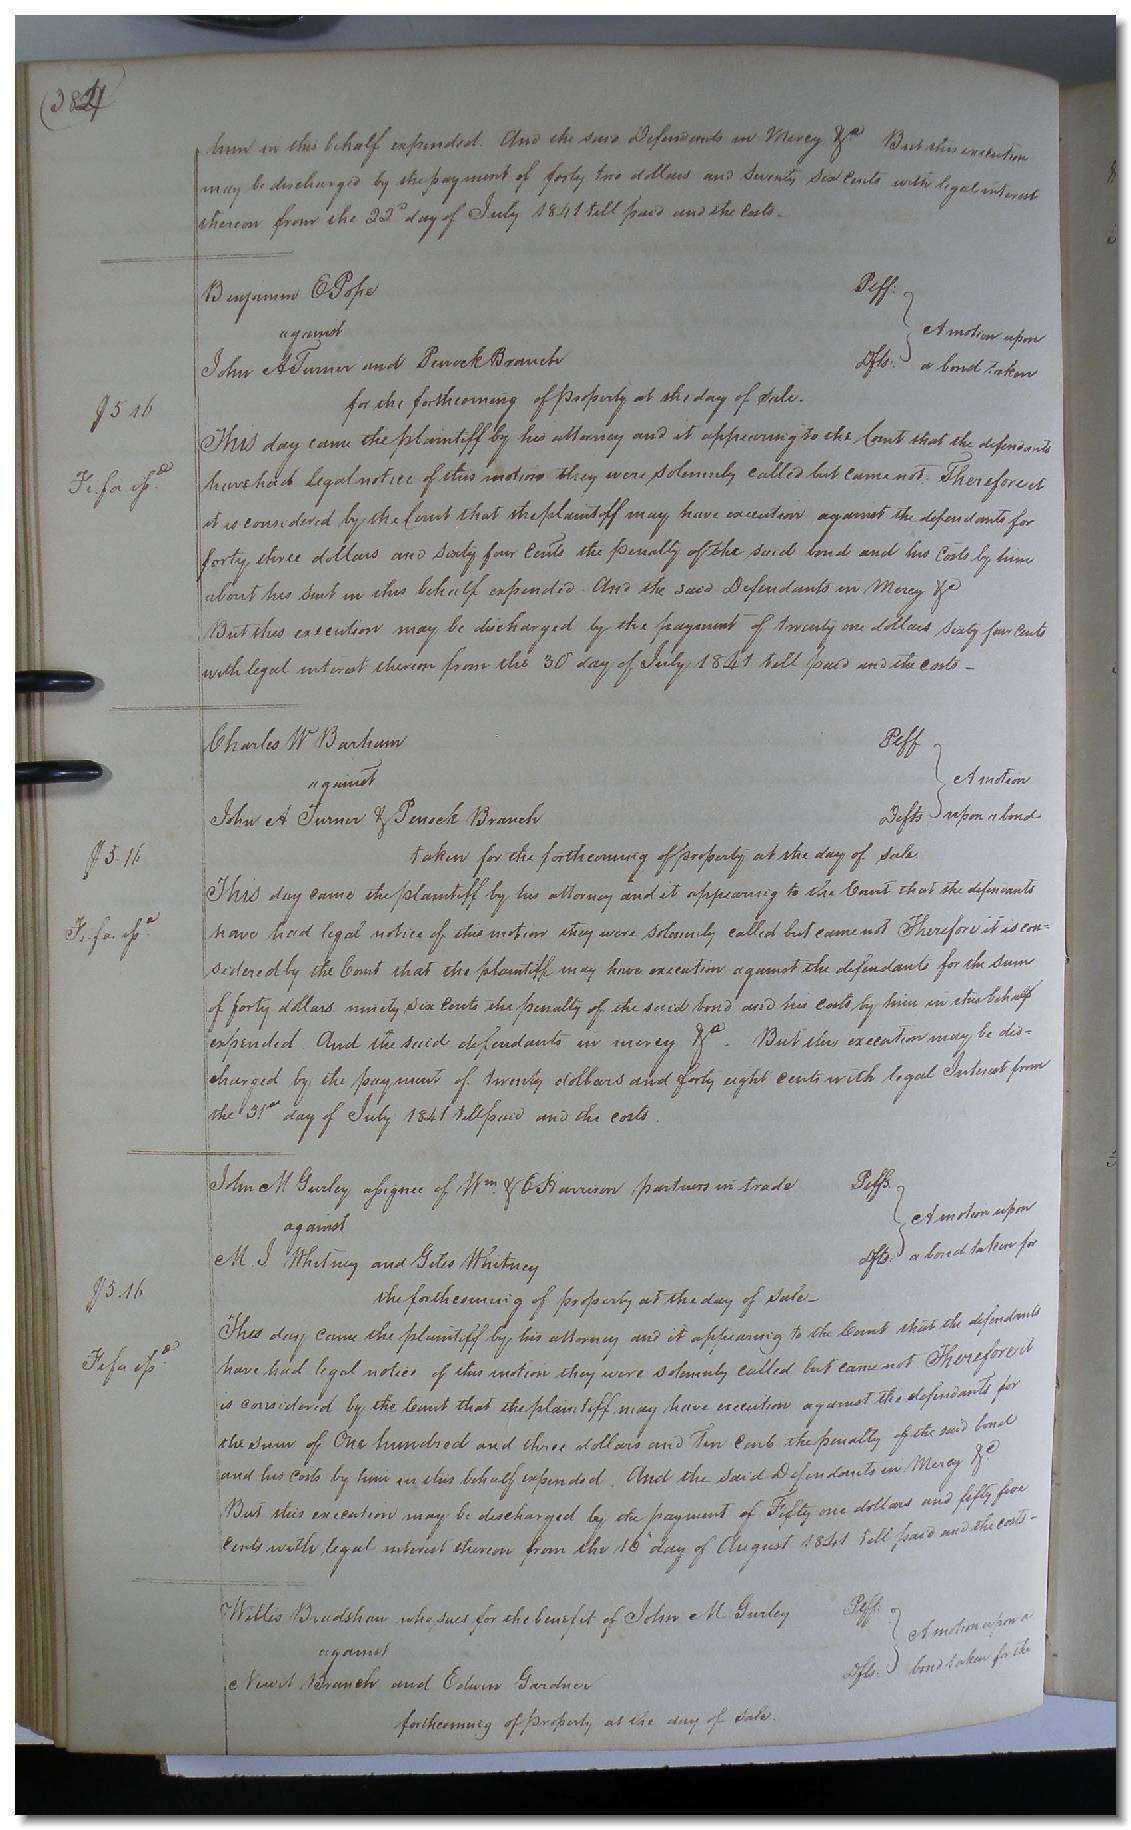 (384
him in this behalf expended. And the said Defendants in Mercy &c But this execution
may be discharged by the payment of forty two dollars and seventy six cents with legal interest
thereon from the 22d day of July 1841 till paid and the costs -
Benjamin E Pope Plff.
against A motion upon
John A Turner and Penock Branch Dfts. a bond taken
for the forthcoming of property at the day of sale.
$5.16
This day came the plaintiff by his attorney and it appearing to the Court that the defendants
have had legal notice of this motion they were solemnly called but came not. Therefore it
Fi. fa. ipd
it is considered by the Court that the plaintiff may have execution against the defendants for
forty three dollars and sixty four cents the penalty of the said bond and his costs by him
about his suit in this behalf expended. And the said Defendants in Mercy &c
But this execution may be discharged by the payment of twenty one dollars sixty four cents
with legal interest thereon from the 30 day of July 1841 till paid and the costs -
Charles W Barham Plff
against A motion
John A Turner & Penock Branch Defts upon a bond
taken for the forthcoming of property at the day of sale.
$5.16
This day came the plaintiff by his attorney and it appearing to the Court that the defendants
have had legal notice of this motion they were solemnly called but came not Therefore it is con=
Fi. fa. ipd
sidered by the Court that the plaintiff may have execution against the defendants for the sum
of forty dollars ninety six cents the penalty of the said bond and his costs by him in this behalf
expended. And the said defendants in mercy &c. But this execution may be dis-
charged by the payment of twenty dollars and forty eight cents with legal Interest from
the 31st day of July 1841 till paid and the costs.
John M Gurley assignee of Wm. & E Harrison partners in trade Pelffs.
against A motion upon
M. J. Whitney and Giles Whitney Dfts. a bond taken for
the forthcoming of property at the day of sale -
$5.16
This day came the plaintiff by his attorney and it appearing to the Court that the defendants
have had legal notice of this motion they were solemnly called but came not Therefore it
Fi fa ipd
is considered by the Court that the plaintiff may have execution against the defendants for
the sum of One hundred and three dollars and Ten cents the penalty of the said bond
and his costs by him in this behalf expended. And the said Defendants in Mercy &c.
But this execution may be discharged by the payment of Fifty one dollars and fifty five
cents with legal interest thereon from the 16 day of August 1841 till paid and the costs -
Willis Bradshaw who sues for the benefit of John M Gurley Plff.
against A motion upon a
Newit Branch and Edwin Gardner Dfts. bond taken for the
forthcoming of property at the day of sale.